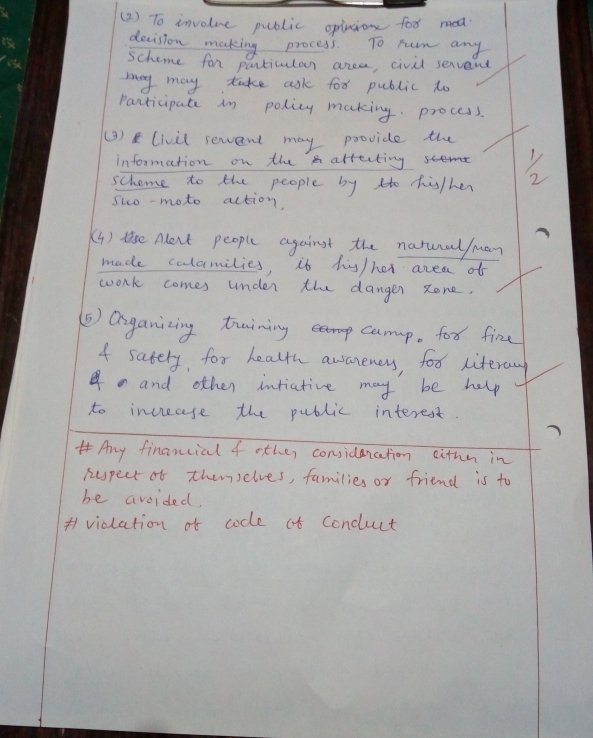 (2) To involve public opinion for
decision making process. To run any
scheme for particular area, civil servant
may take ask for public to
Participate in policy making process.
(3) Civil servant may provide the
information on the affecting
scheme to the people by his/her
suo-moto action.
1/2
(4) Alert people against the natural/man
made calamilies, ib his/her area of
work comes under the danger zone.
(5) Organizing training camp. for fire
& safety, for health awareness, for literacy
and other intiative may be help
to increase the public interest.
# Any financial & other consideration either in
respect of themselves, families or friend is to
be avoided.
# violation of code of conduct